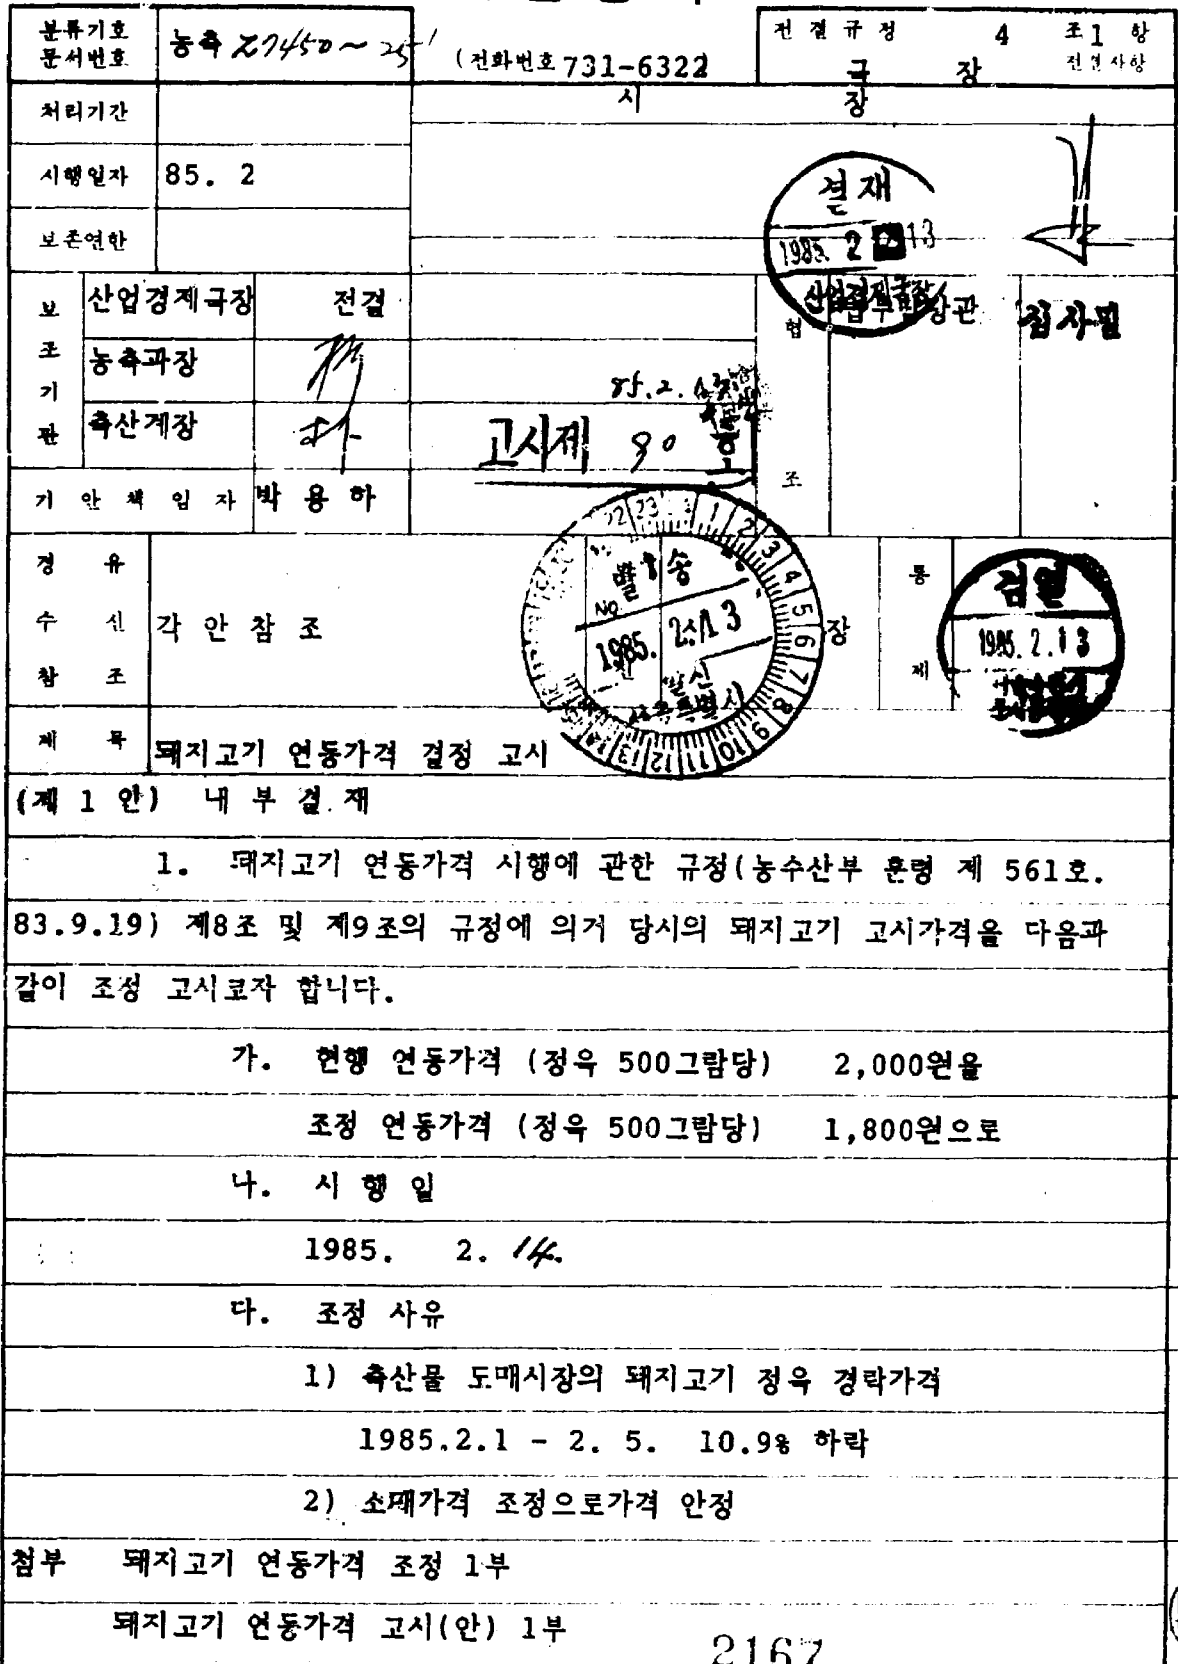 분류기호
문서번호
농축 27450~
(전화번호 731-6322)
전결규정 4 조 1 항
전결사항
국 장
처리기간
시 장
시행일자 85. 2
보존연한
결재
1985. 2 13
산업경제국장
보조기관
산업경제국장 전결
농축과장
축산계장
협조
85.2.
고시제 90 호
기안책임자 박용하
경유
수신
참조
각안참조
발송
No
1985. 2. 13
발신
서울특별시
장
통제
검열
1985. 2. 13
제 목 돼지고기 연동가격 결정 고시
(제 1 안) 내부결재
1. 돼지고기 연동가격 시행에 관한 규정(농수산부 훈령 제 561호.
83.9.19) 제8조 및 제9조의 규정에 의거 당시의 돼지고기 고시가격을 다음과
같이 조정 고시코자 합니다.
가. 현행 연동가격 (정육 500그람당) 2,000원을
조정 연동가격 (정육 500그람당) 1,800원으로
나. 시 행 일
1985. 2. 14.
다. 조정 사유
1) 축산물 도매시장의 돼지고기 정육 경락가격
1985.2.1 - 2. 5. 10.9% 하락
2) 소매가격 조정으로가격 안정
첨부 돼지고기 연동가격 조정 1부
돼지고기 연동가격 고시(안) 1부
2167